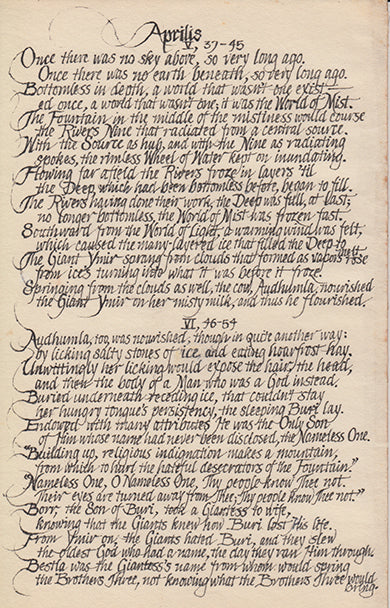 Aprilis
V, 37-45
Once there was no sky above, so very long ago.
Once there was no earth beneath, so very long ago.
Bottomless in depth, a world that wasn't one exist-
ed once, a world that wasn't one; it was the World of Mist.
The Fountain in the middle of the mistiness would course
the Rivers Nine that radiated from a central source.
With the Source as hub, and with the Nine as radiating
spokes, the rimless Wheel of Water kept on inundating.
Flowing far afield the Rivers froze in layers 'til
the Deep, which had been bottomless before, began to fill.
The Rivers having done their work, the Deep was full, at last;
no longer bottomless, the World of Mist was frozen fast.
Southward from the World of Light, a warming wind was felt,
which caused the many-layered ice that filled the Deep to melt.
The Giant Ymir sprang from clouds that formed as vapors rose
from ice's turning into what it was before it froze.
Springing from the clouds as well, the cow, Audhumla, nourished
the Giant Ymir on her misty milk, and thus he flourished.
VI, 46-54
Audhumla, too, was nourished, though in quite another way:
by licking salty stones of ice and eating hoarfrost hay.
Unwittingly her licking would expose the hair, the head,
and then the body of a Man who was a God instead.
Buried underneath receding ice, that couldn't stay
her hungry tongue's persistency, the sleeping Buri lay.
Endowed with many attributes He was the Only Son
of Him whose name had never been disclosed, the Nameless One.
"Building up, religious indignation makes a mountain,
from which to hurl the hateful desecrators of the Fountain."
"Nameless One, O Nameless One, Thy people know Thee not.
Their eyes are turned away from Thee; Thy people know Thee not."
Borr, the Son of Buri, took a Giantess to wife,
knowing that the Giants knew how Buri lost His life.
From Ymir on, the Giants hated Buri, and they slew
the oldest God who had a name, the day they ran Him through.
Bestla was the Giantess's name from whom would spring
the Brothers Three, not knowing what the Brothers Three would bring.